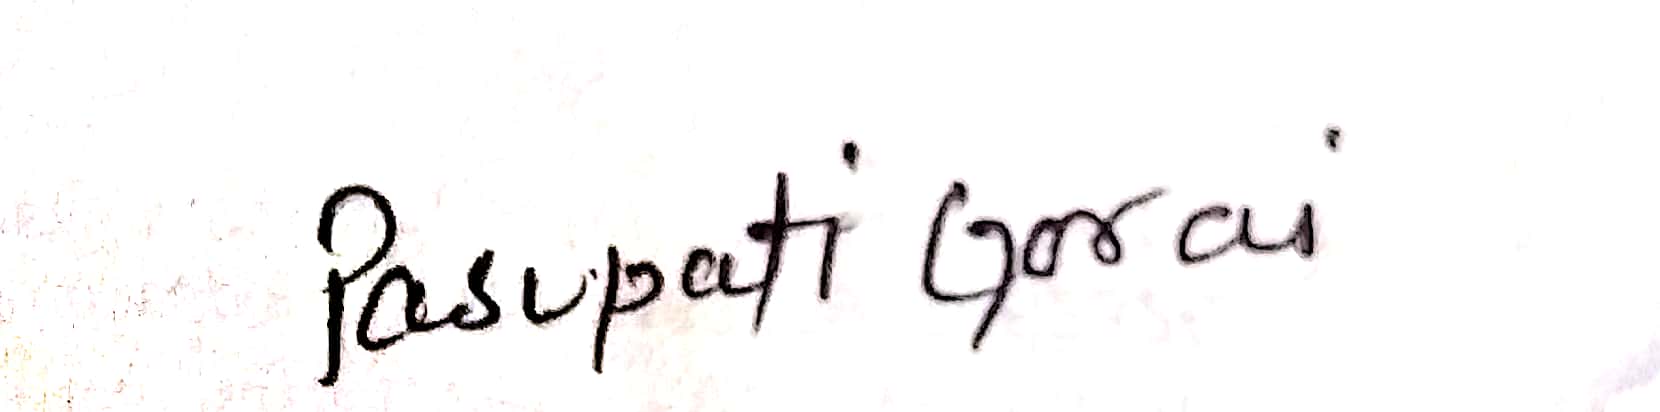 Pasupati Gorai